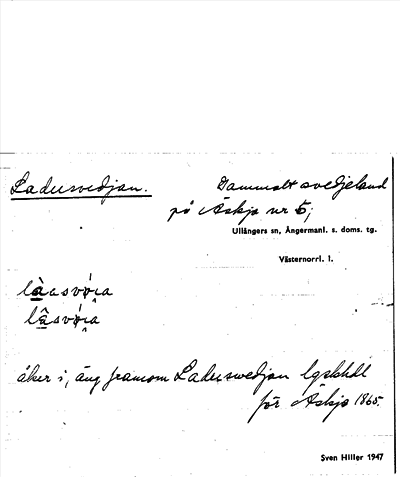 Ladusvedjan.
Gammalt svedjeland
på Äskja nr 5;
Ullångers sn, Ångermanl. s. doms. tg.
Västernorrl. l.
åker i, äng framom Ladusvedjan lgskhdl
för Äskja 1865.
Sven Hiller 1947